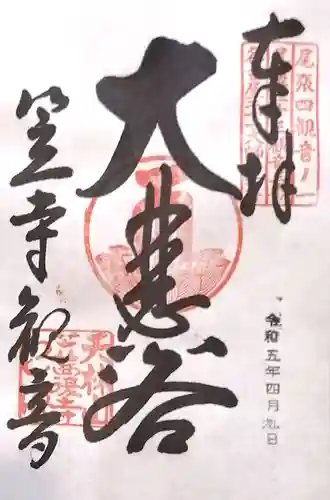 奉拝
尾張四観音ノ
大悲閣
令和五年四月九日
笠寺観音
天林山